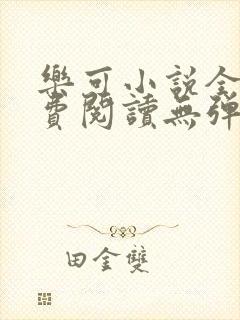 樂可小說全
費閱讀無彈
田金雙